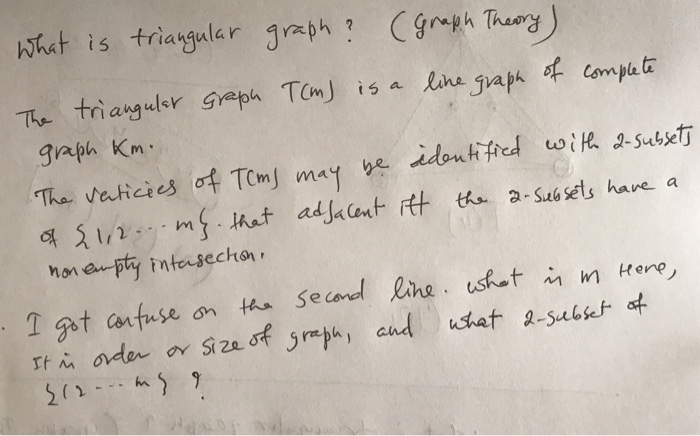 What is triangular graph? (Graph Theory)
The triangular Graph T(m) is a line graph of complete
graph Km.
The verticies of T(m) may be identified with 2-subsets
of {1,2...m}. that adjacent iff the 2-subsets have a
non empty intersection.
. I got confuse on the second line. what is m Here,
It is order or size of graph, and what 2-subset of
{12...m} ?